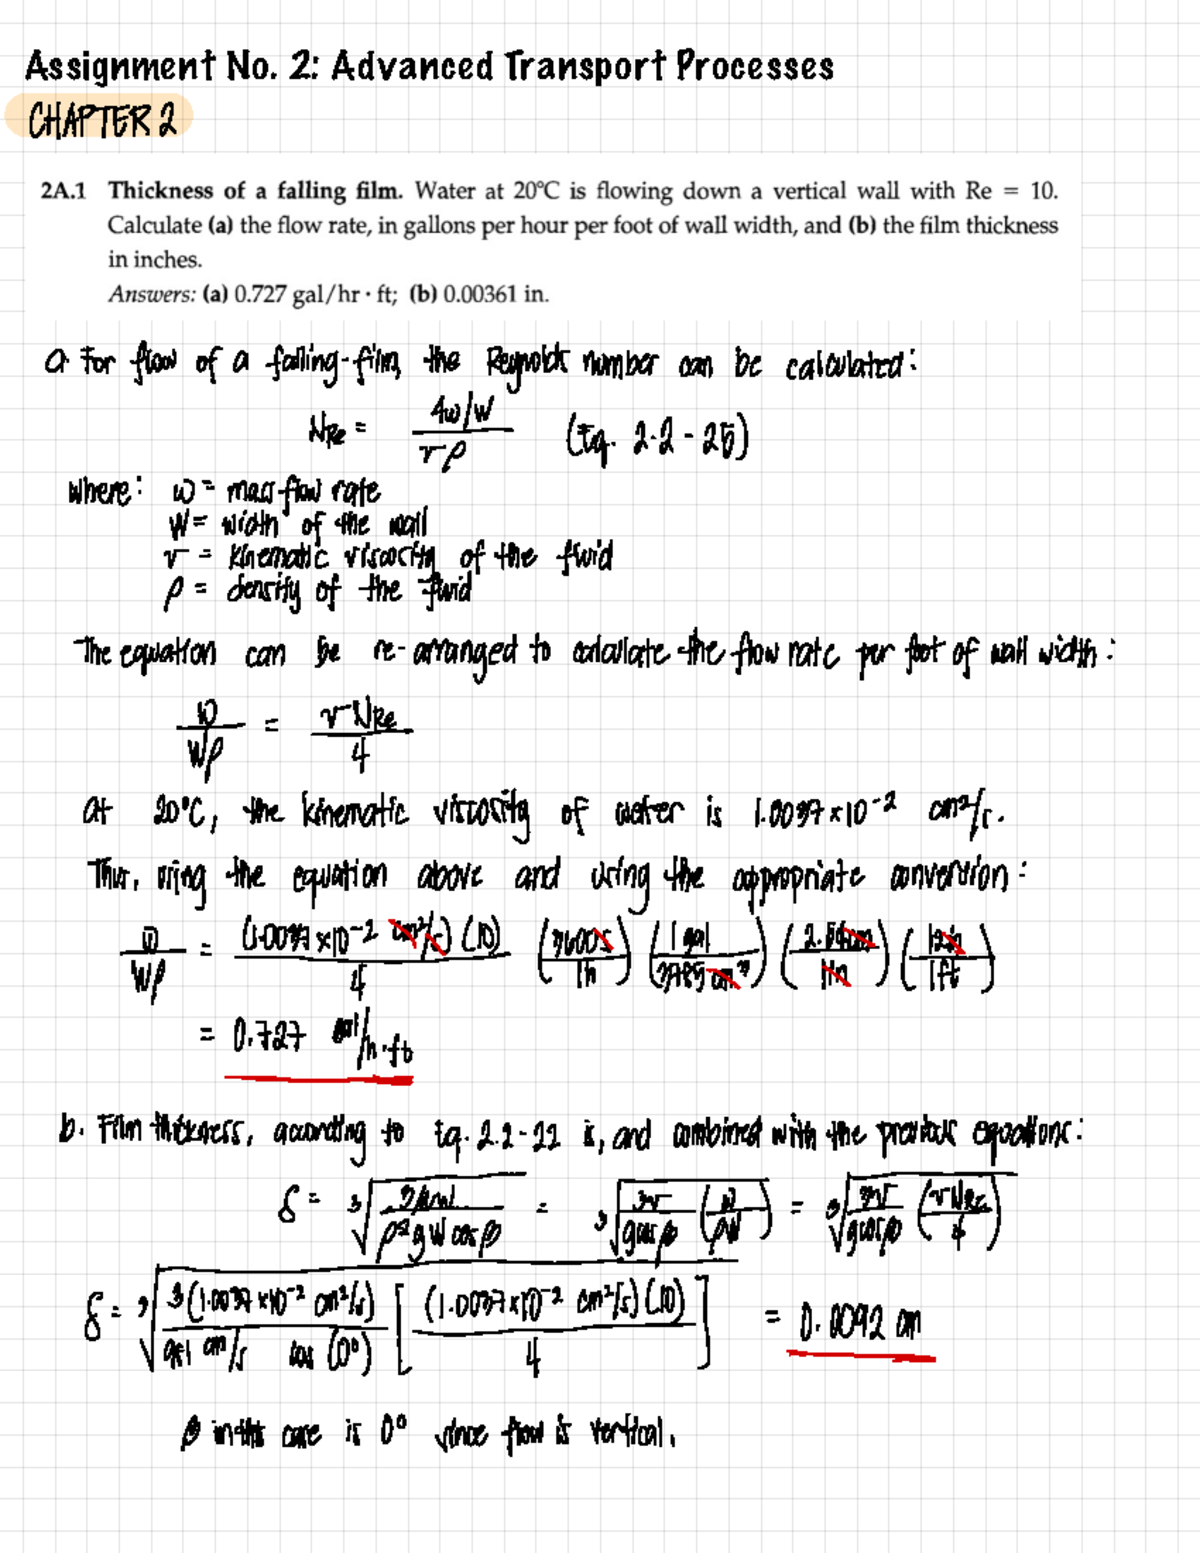 Assignment No. 2: Advanced Transport Processes
CHAPTER 2
2A.1 Thickness of a falling film. Water at 20°C is flowing down a vertical wall with Re = 10.
Calculate (a) the flow rate, in gallons per hour per foot of wall width, and (b) the film thickness
in inches.
Answers: (a) 0.727 gal/hr · ft; (b) 0.00361 in.
a. For flow of a falling-film, the Reynolds number can be calculated:
NRe = 4w/W / νρ (Eq. 2.2-25)
where: w = mass flow rate
W = width of the wall
ν = kinematic viscosity of the fluid
ρ = density of the fluid
The equation can be re-arranged to calculate the flow rate per foot of wall width:
w/Wρ = νNRe/4
At 20°C, the kinematic viscosity of water is 1.0037 x 10^-2 cm²/s.
Thus, using the equation above and using the appropriate conversion:
w/Wρ = (1.0037 x 10^-2 cm²/s)(10)/4 (3600s/1h) (1 gal/3785 cm³) (2.54cm/1in) (12in/1ft)
= 0.727 gal/h·ft
b. Film thickness, according to Eq. 2.2-22 is, and combined with the previous equations:
δ = ∛(3μw/ρ²gW cos β) = ∛(3ν/g cos β (w/ρW)) = ∛(3ν/g cos β (νNRe/4))
δ = ∛(3(1.0037 x 10^-2 cm²/s)/981 cm/s cos (0°) [(1.0037 x 10^-2 cm²/s)(10)/4]) = 0.0092 cm
β in this case is 0° since flow is vertical.